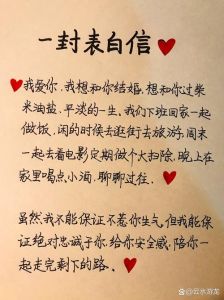 一封表白信
我爱你，我想和你结婚，想和你过柴
米油盐，平淡的一生，我们下班回家一起
做饭，闲的时候去逛街去旅游，周末
一起去看电影定期做个大扫除，晚上在
家里喝点小酒，聊聊过往。
虽然我不能保证不惹你生气，但我能保
证绝对忠诚于你，给你安全感，陪你一
起走完剩下的路。